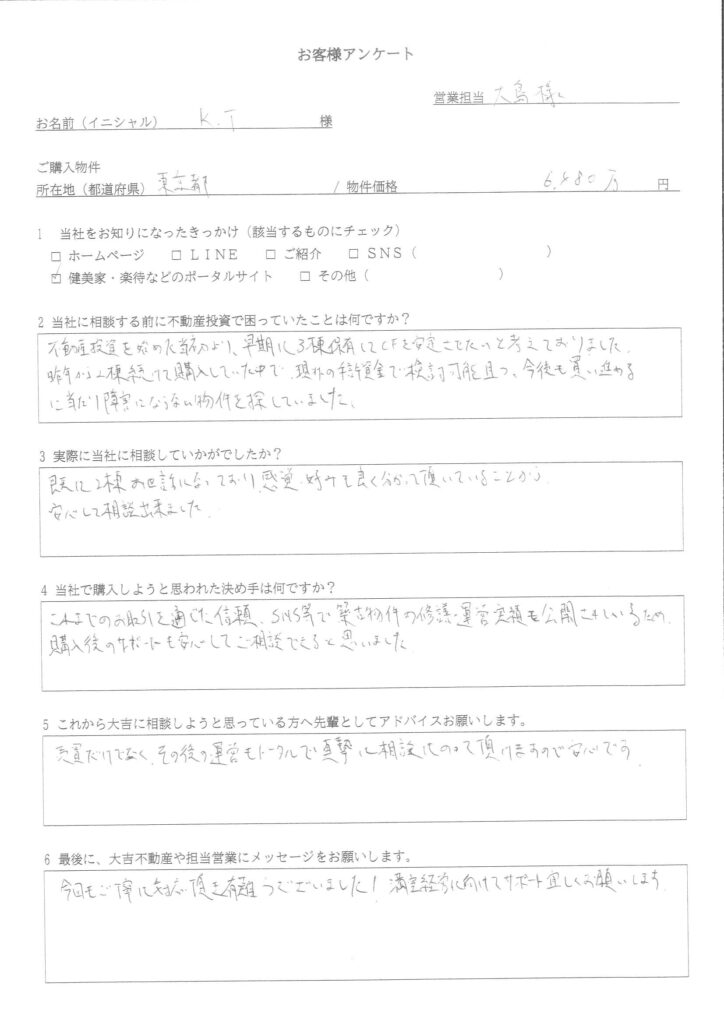 お客様アンケート
営業担当 大島様
お名前（イニシャル） K.T 様
ご購入物件
所在地（都道府県） 東京都 / 物件価格 6,480万 円
1 当社をお知りになったきっかけ（該当するものにチェック）
□ ホームページ □ ＬＩＮＥ □ ご紹介 □ ＳＮＳ（ ）
☑ 健美家・楽待などのポータルサイト □ その他（ ）
2 当社に相談する前に不動産投資で困っていたことは何ですか？
不動産投資を始めた当初より、早期に3棟保有してCFを安定させたいと考えておりました。
昨年から2棟続けて購入していた中で、現状の手許資金で検討可能且つ、今後も買い進める
に当たり障害にならない物件を探していました。
3 実際に当社に相談していかがでしたか？
既に2棟お世話になっており、感覚・好みも良く分かって頂いていることから
安心して相談出来ました。
4 当社で購入しようと思われた決め手は何ですか？
これまでのお取引を通じた信頼、SNS等で築古物件の修繕・運営実績も公開されているため、
購入後のサポートも安心してご相談できると思いました。
5 これから大吉に相談しようと思っている方へ先輩としてアドバイスお願いします。
売買だけでなく、その後の運営もトータルで真摯に相談にのって頂けますので安心です。
6 最後に、大吉不動産や担当営業にメッセージをお願いします。
今回もご丁寧に対応頂き有難うございました！満室経営に向けてサポート宜しくお願いします。